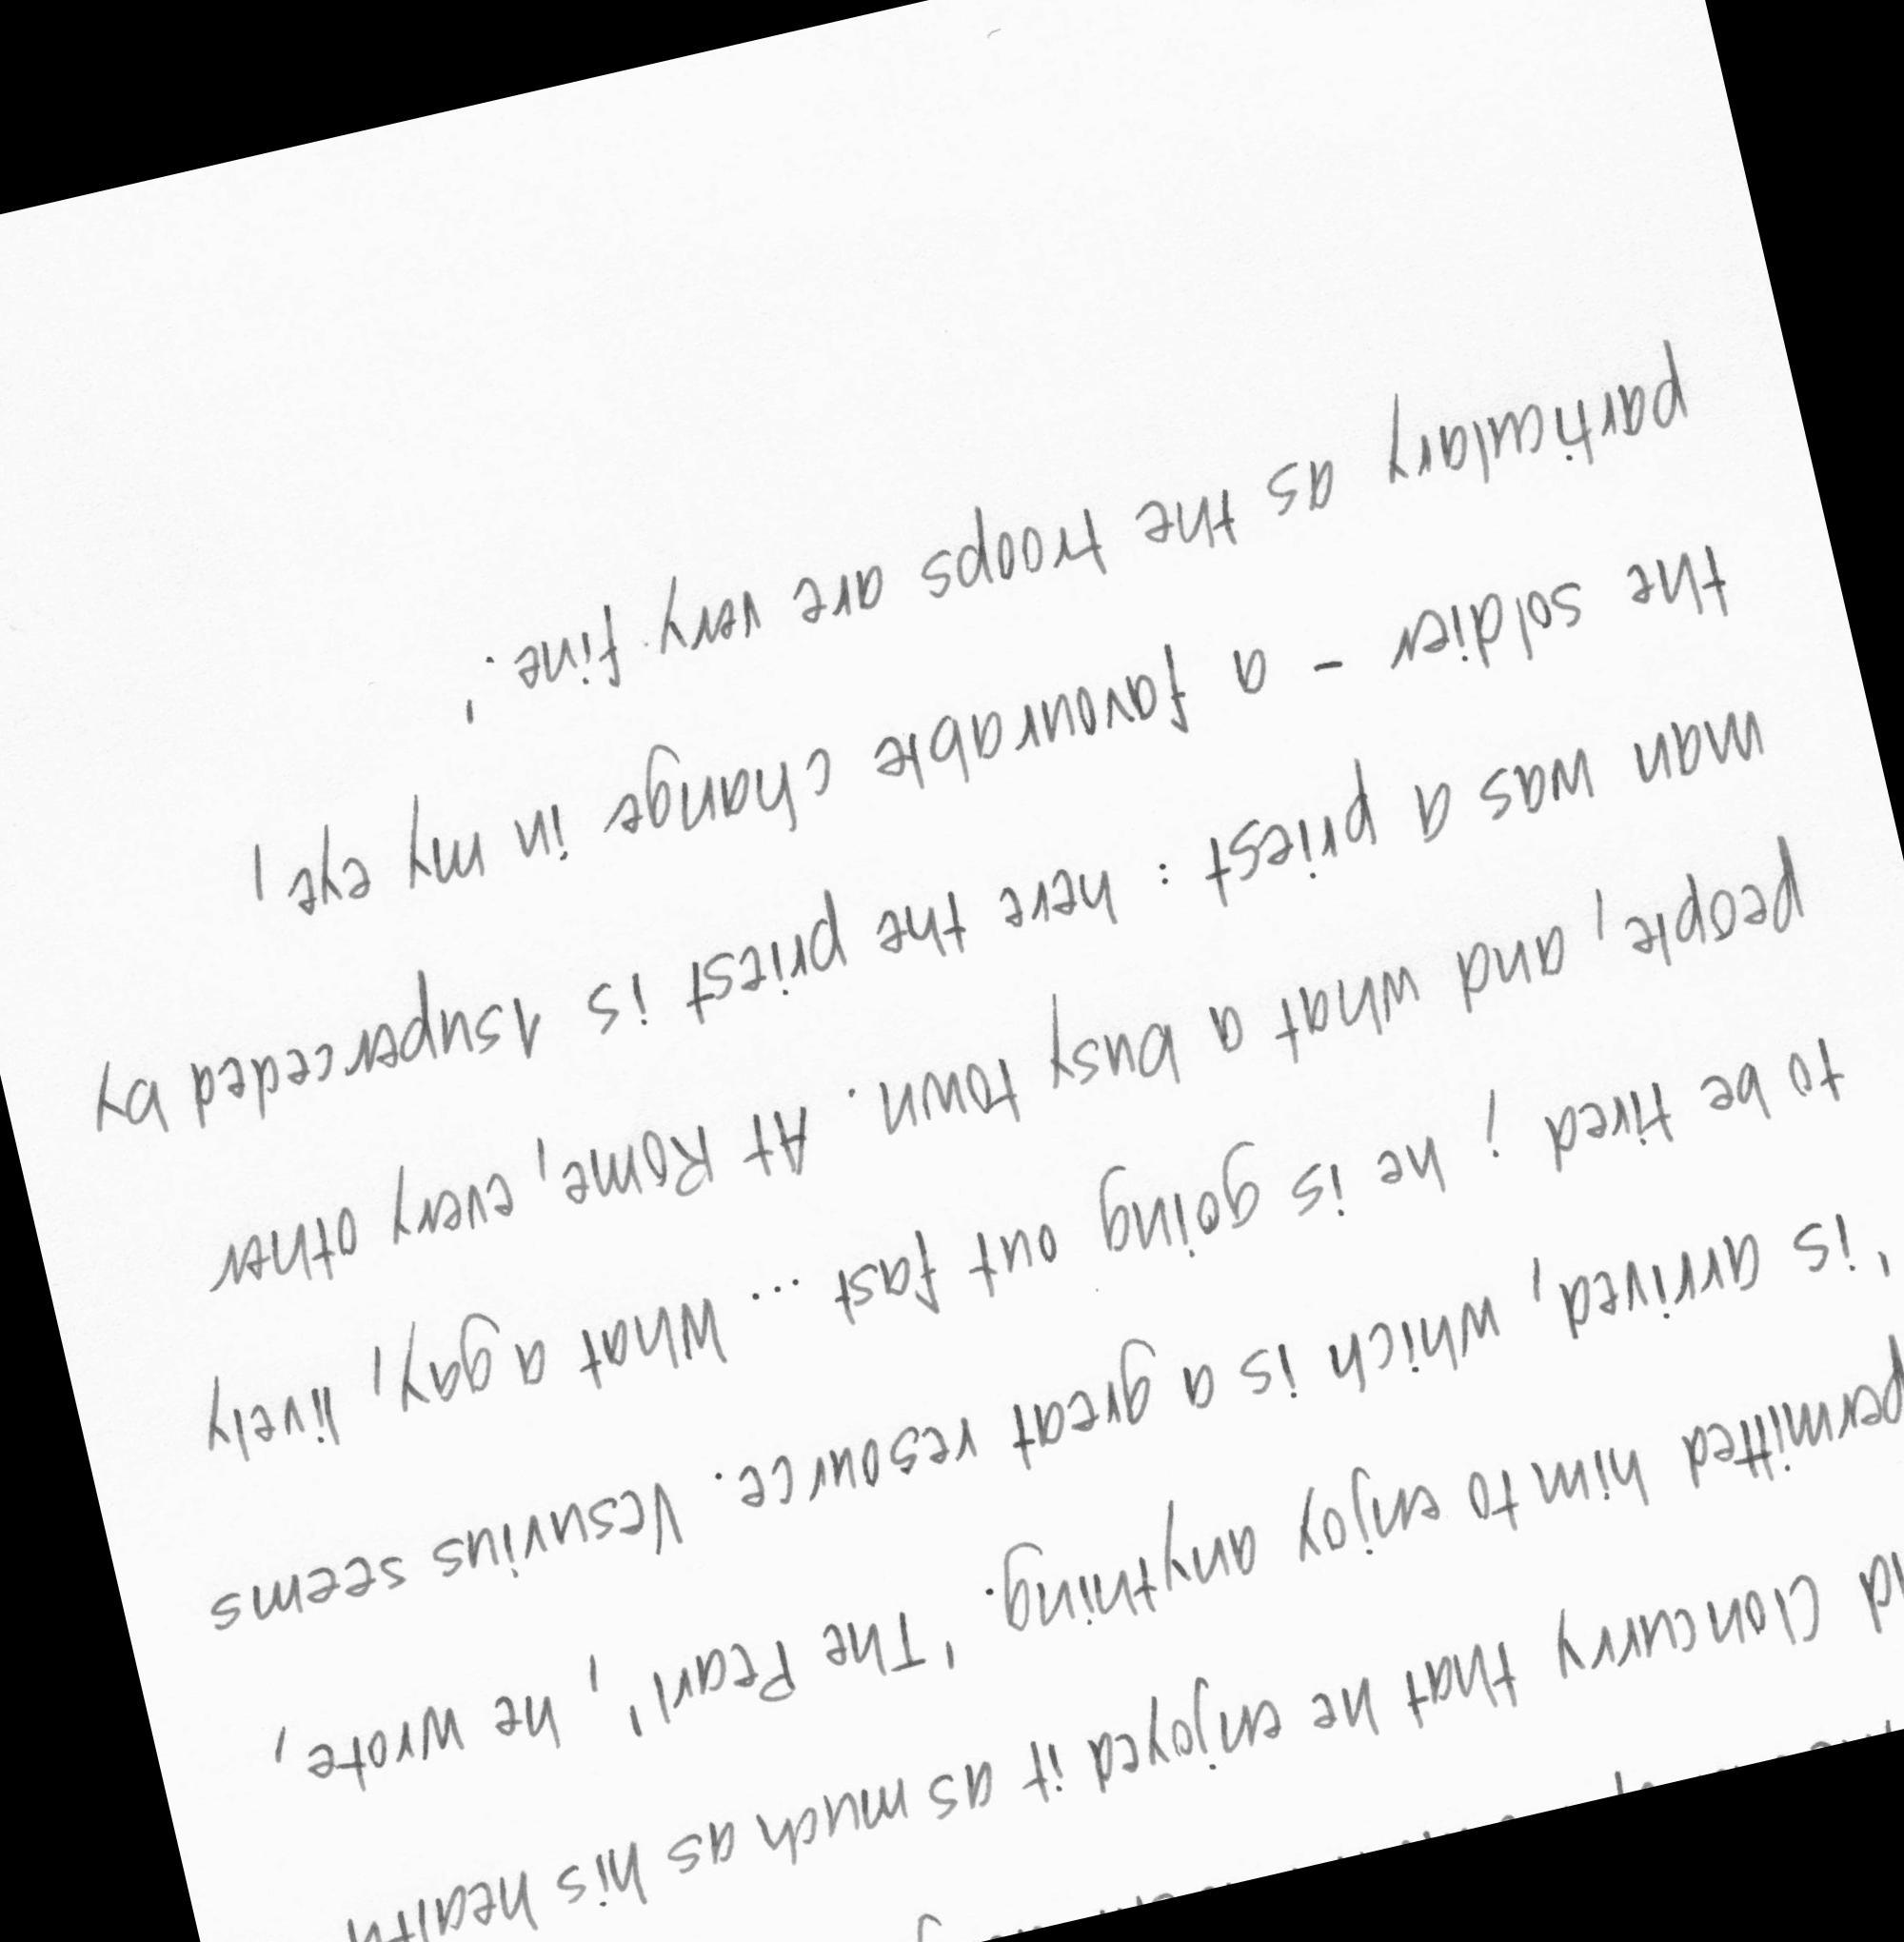 Cloncurry that he enjoyed it as much as his health
permitted him to enjoy anything. 'The Pearl', he wrote,
'is arrived, which is a great resource. Vesuvius seems
to be tired; he is going out fast ... What a gay, lively
people, and what a busy town. At Rome, every other
man was a priest: here the priest is superceded by
the soldier - a favourable change in my eye,
particulary as the troops are very fine.'